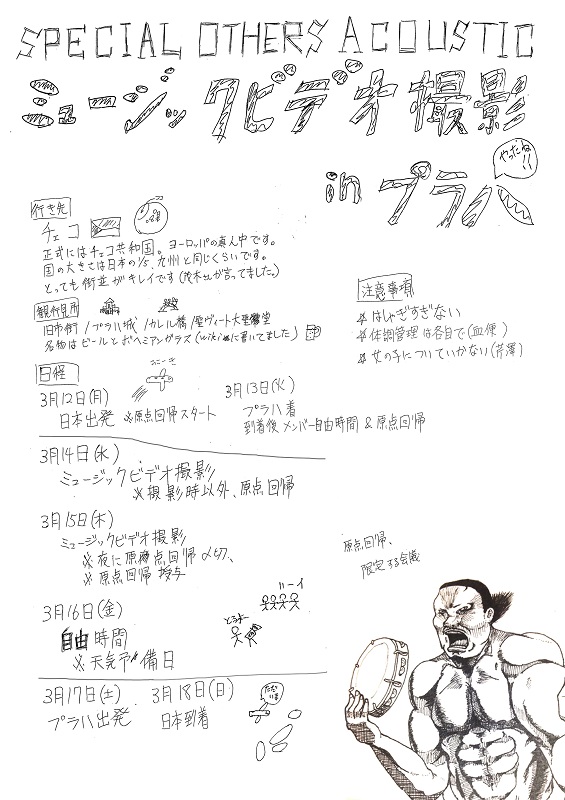 SPECIAL OTHERS ACOUSTIC
ミュージックビデオ撮影
in プラハ
やったね!!
行き先
チェコ
正式にはチェコ共和国。ヨーロッパの真ん中です。
国の大きさは日本の1/5、九州と同じくらいです。
とっても街並がキレイです(茂木さんが言ってました。)
観光名所
旧市街/プラハ城/カレル橋/聖ヴィート大聖堂
名物はビールとボヘミアングラス(wikiに書いてました)
注意事項
☆はしゃぎすぎない
☆体調管理は各自で(血便)
☆女の子についていかない(芹澤)
日程
3月12日(月)
日本出発 ※原点回帰スタート
3月13日(火)
プラハ着
到着後メンバー自由時間&原点回帰
3月14日(水)
ミュージックビデオ撮影
※撮影時以外、原点回帰
3月15日(木)
ミュージックビデオ撮影
※夜に原点回帰〆切、
※原点回帰授与
3月16日(金)
自由時間
※天気予備日
ハーイ
3月17日(土)
プラハ出発
3月18日(日)
日本到着
ただいま
原点回帰、
限定する会議